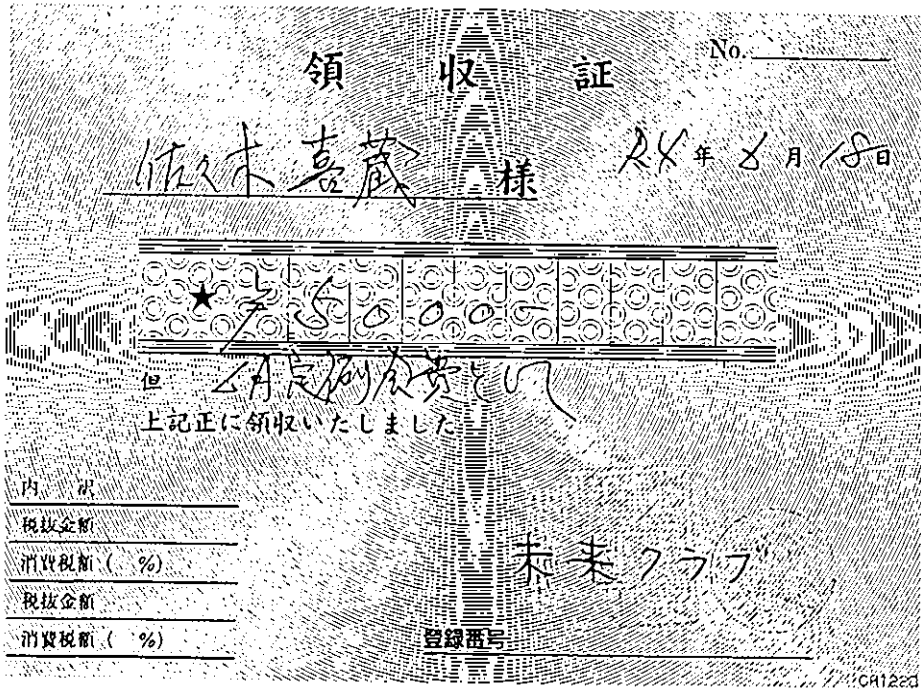 領収証
No.
佐々木喜蔵様
24年8月18日
★ 5000-
但 月定例会費として
上記正に領収いたしました
内訳
税抜金額
消費税額( %)
税抜金額
消費税額( %)
未来クラブ
登録番号